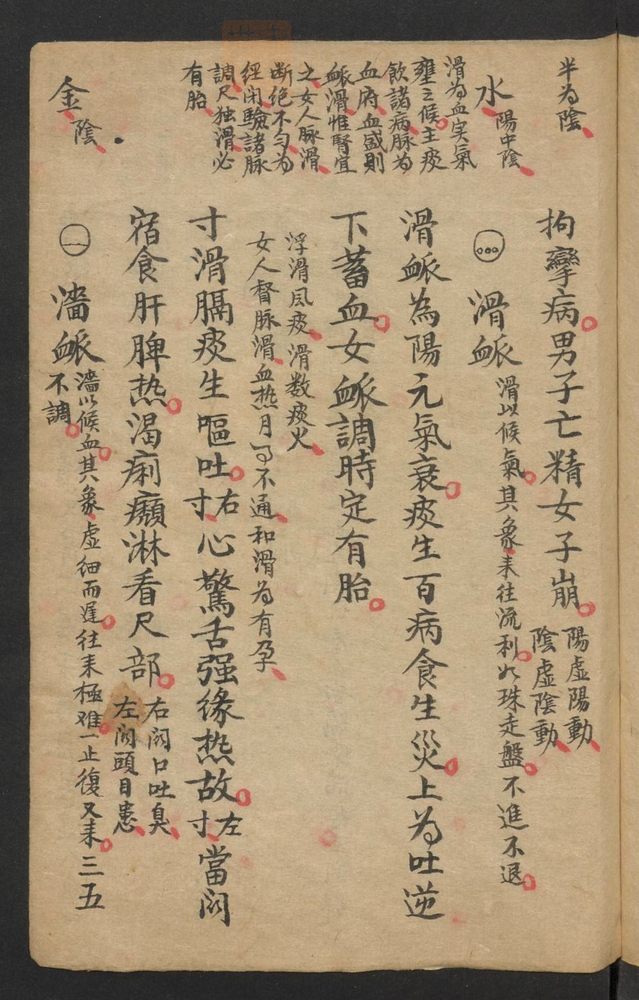 半為陰
水 陽中陰
滑為血实氣
壅之候主痰
飲諸病脉為
血府血盛則
衇滑惟腎宜
之女人脉滑
断绝不匀為
經闭驗諸脉
調尺独滑必
有胎
金 陰
拘攣病男子亡精女子崩 陽虛陽動
陰虛陰動
滑衇 滑以候氣其象来往流利如珠走盤不進不退
滑衇為陽元氣衰痰生百病食生災上為吐逆
下蓄血女衇調時定有胎
浮滑风痰滑数痰火
女人督脉滑血热月可不通和滑為有孕
寸滑膈痰生嘔吐右寸心驚舌强缘热故左寸當関
宿食肝脾热渴痢癩淋看尺部 右関口吐臭
左関頭目患
濇衇 濇以候血其象虛细而遲往来極难一止復又来三五
不調